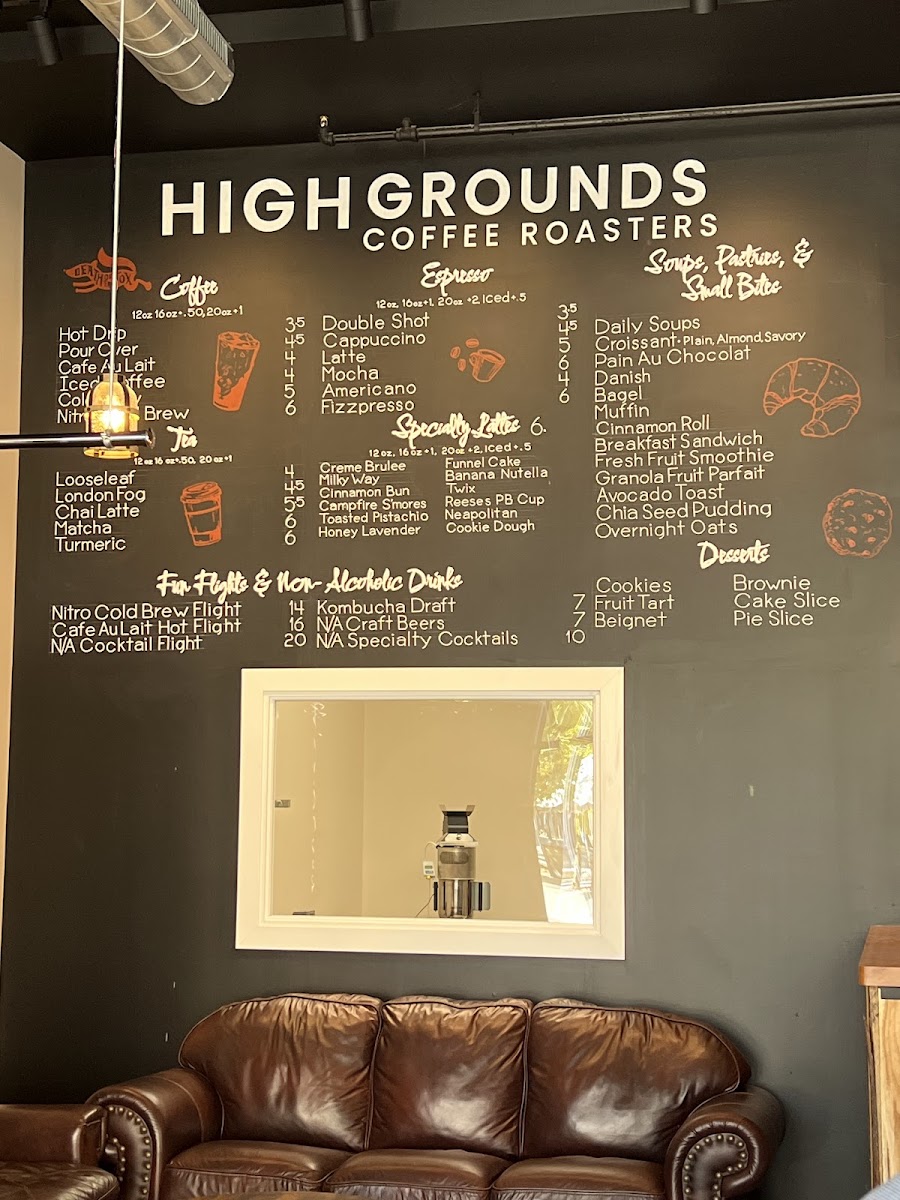 HIGH GROUNDS
COFFEE ROASTERS
DEATH
Coffee
12oz 16oz+.50, 20oz+1
Hot Drip 3.5
Pour Over 4.5
Cafe Au Lait 4
Iced Coffee 4
Cold 5
Nitro Brew 6
Tea
12oz 16oz+.50, 20oz+1
Looseleaf 4
London Fog 4.5
Chai Latte 5.5
Matcha 6
Turmeric 6
Espresso
12oz, 16oz+1, 20oz +2, Iced+.5
Double Shot 3.5
Cappuccino 4.5
Latte 5
Mocha 6
Americano 4
Fizzpresso 6
Specialty Lattes 6.
12oz, 16oz+1, 20oz+2, Iced+.5
Creme Brulee
Milky Way
Cinnamon Bun
Campfire S'mores
Toasted Pistachio
Honey Lavender
Funnel Cake
Banana Nutella
Twix
Reeses PB Cup
Neapolitan
Cookie Dough
Fun Flights & Non-Alcoholic Drinks
Nitro Cold Brew Flight 14
Cafe Au Lait Hot Flight 16
N/A Cocktail Flight 20
Kombucha Draft 7
N/A Craft Beers 7
N/A Specialty Cocktails 10
Soups, Pastries, &
Small Bites
Daily Soups
Croissant- Plain, Almond, Savory
Pain Au Chocolat
Danish
Bagel
Muffin
Cinnamon Roll
Breakfast Sandwich
Fresh Fruit Smoothie
Granola Fruit Parfait
Avocado Toast
Chia Seed Pudding
Overnight Oats
Desserts
Cookies
Fruit Tart
Beignet
Brownie
Cake Slice
Pie Slice